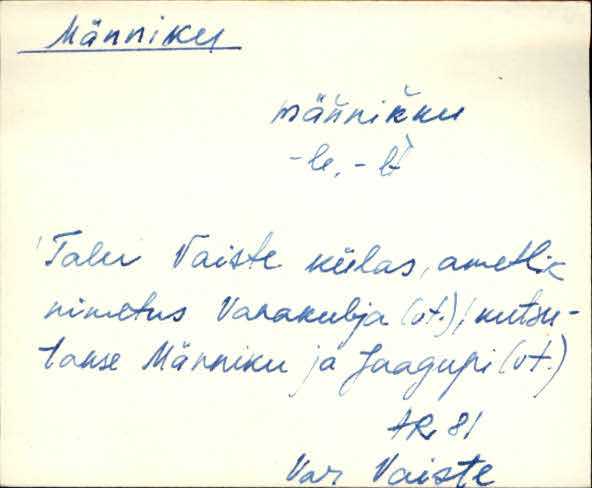 Männiku
mäǹnikku
-le, -lt
Talu Vaiste külas, ametlik
nimetus Vanakubja (vt.), kutsu-
takse Männiku ja Jaagupi (vt.)
AR 81
Var Vaiste